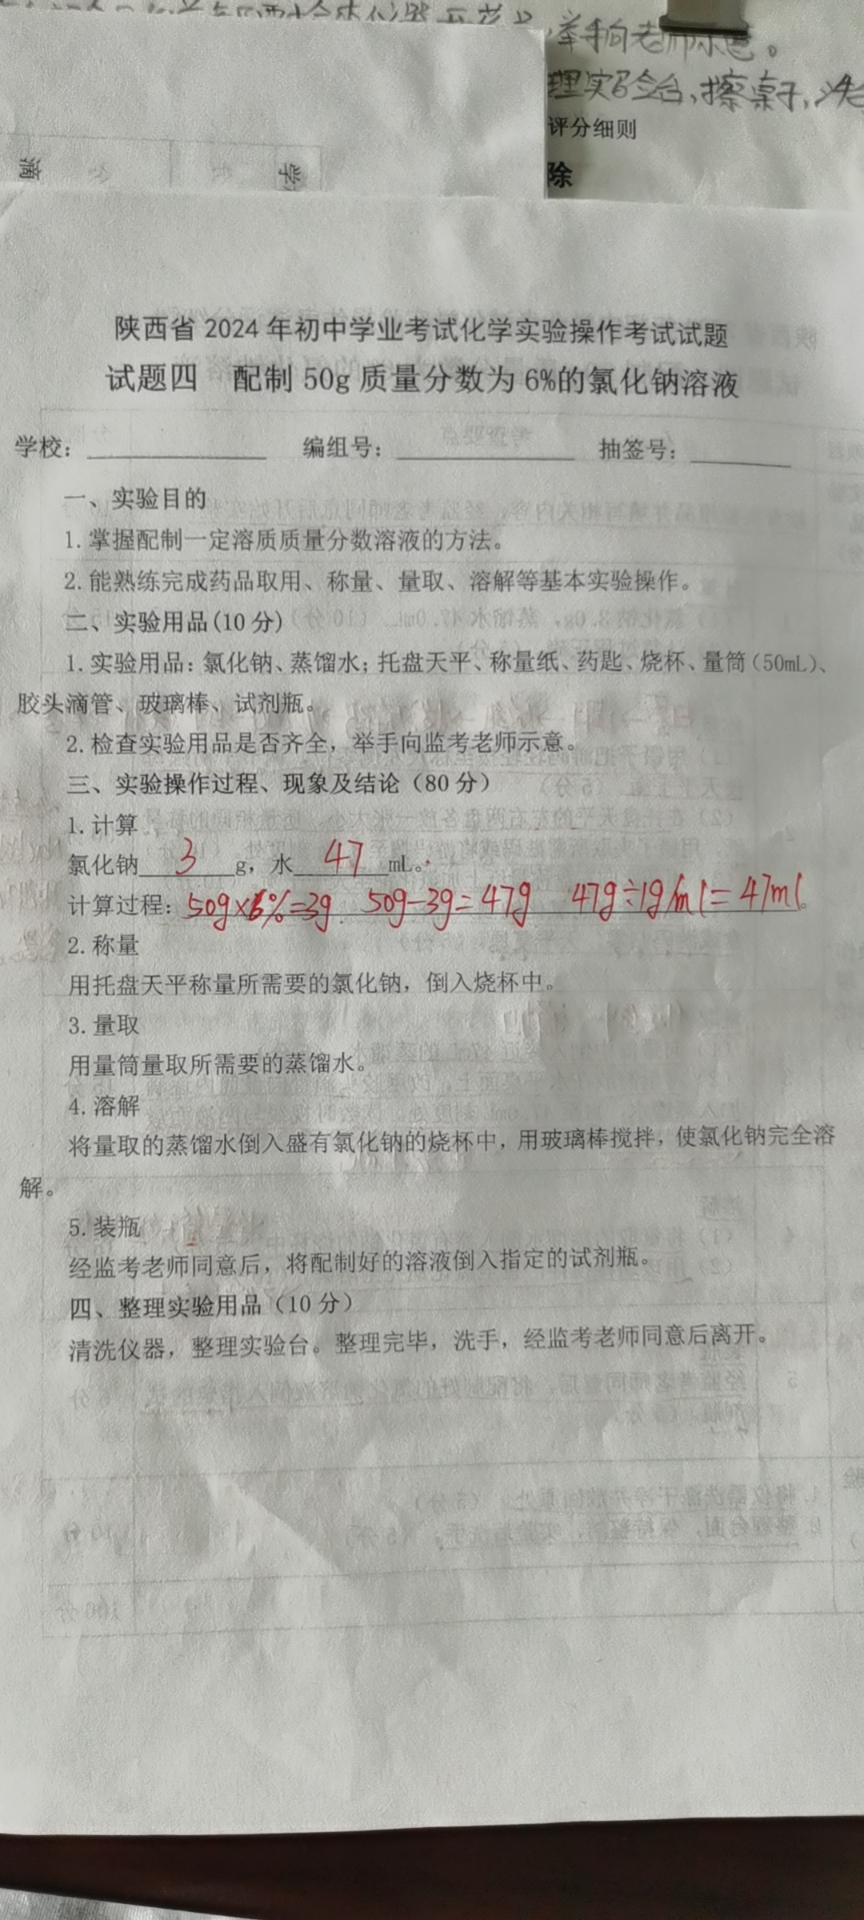 举手向老师示意。
理实验台,擦桌子,洗
评分细则
除
滴
学
陕西省 2024 年初中学业考试化学实验操作考试试题
试题四 配制 50g 质量分数为 6%的氯化钠溶液
学校: 编组号: 抽签号:
一、实验目的
1.掌握配制一定溶质质量分数溶液的方法。
2.能熟练完成药品取用、称量、量取、溶解等基本实验操作。
二、实验用品(10 分)
1.实验用品:氯化钠、蒸馏水;托盘天平、称量纸、药匙、烧杯、量筒(50mL)、
胶头滴管、玻璃棒、试剂瓶。
2.检查实验用品是否齐全,举手向监考老师示意。
三、实验操作过程、现象及结论(80 分)
1.计算
氯化钠 3 g,水 47 mL。
计算过程: 50g×6%=3g 50g-3g=47g 47g÷1g/ml=47ml。
2.称量
用托盘天平称量所需要的氯化钠,倒入烧杯中。
3.量取
用量筒量取所需要的蒸馏水。
4.溶解
将量取的蒸馏水倒入盛有氯化钠的烧杯中,用玻璃棒搅拌,使氯化钠完全溶
解。
5.装瓶
经监考老师同意后,将配制好的溶液倒入指定的试剂瓶。
四、整理实验用品(10 分)
清洗仪器,整理实验台。整理完毕,洗手,经监考老师同意后离开。